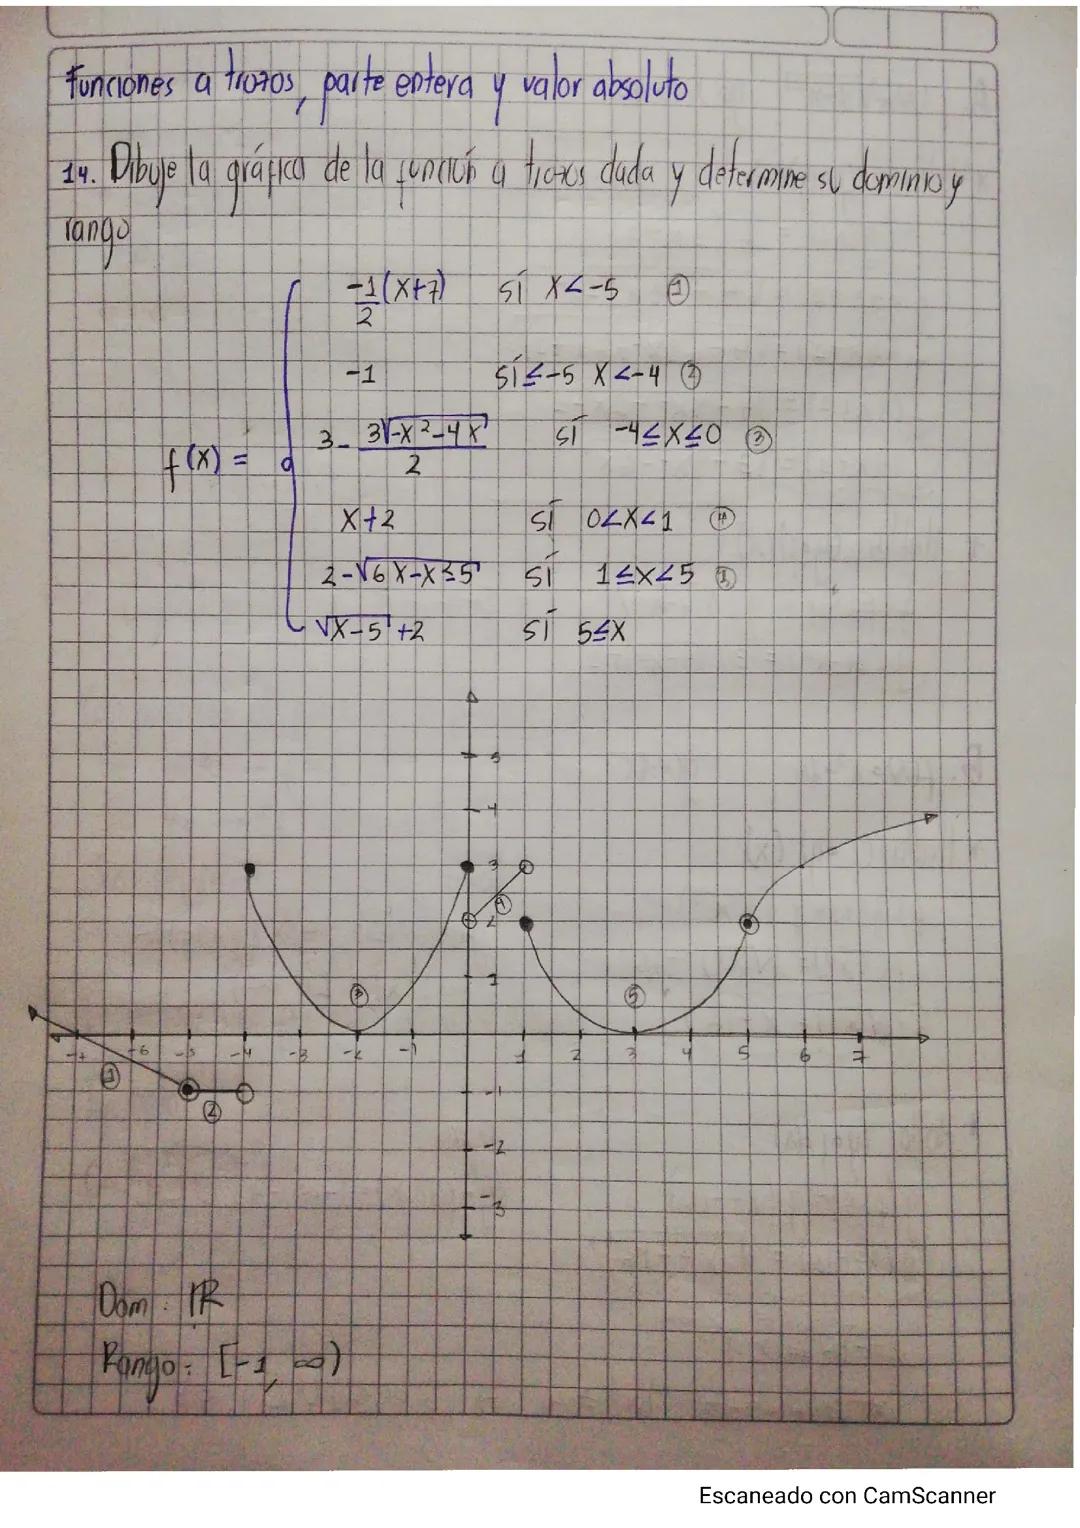 Funciones a trozos, parte entera y valor absoluto
14. Dibuje la gráfica de la función a trozos dada y determine su dominio y
rango
-1/2 (x+7) sí x<-5 ①
-1 sí ≤-5 x<-4 ②
3 - 3√-x²-4x / 2 sí -4≤x≤0 ③
f(x) =
x+2 sí 0<x<1 ④
2-√6x-x²-5 sí 1≤x<5 ⑤
√x-5 +2 sí 5≤x
5
4
3
2 ④
1
③ ⑤
-7 -6 -5 -4 -3 -2 -1 1 2 3 4 5 6 7
① ② -1
-2
-3
Dom: IR
Rango: [-1, ∞)
Escaneado con CamScanner